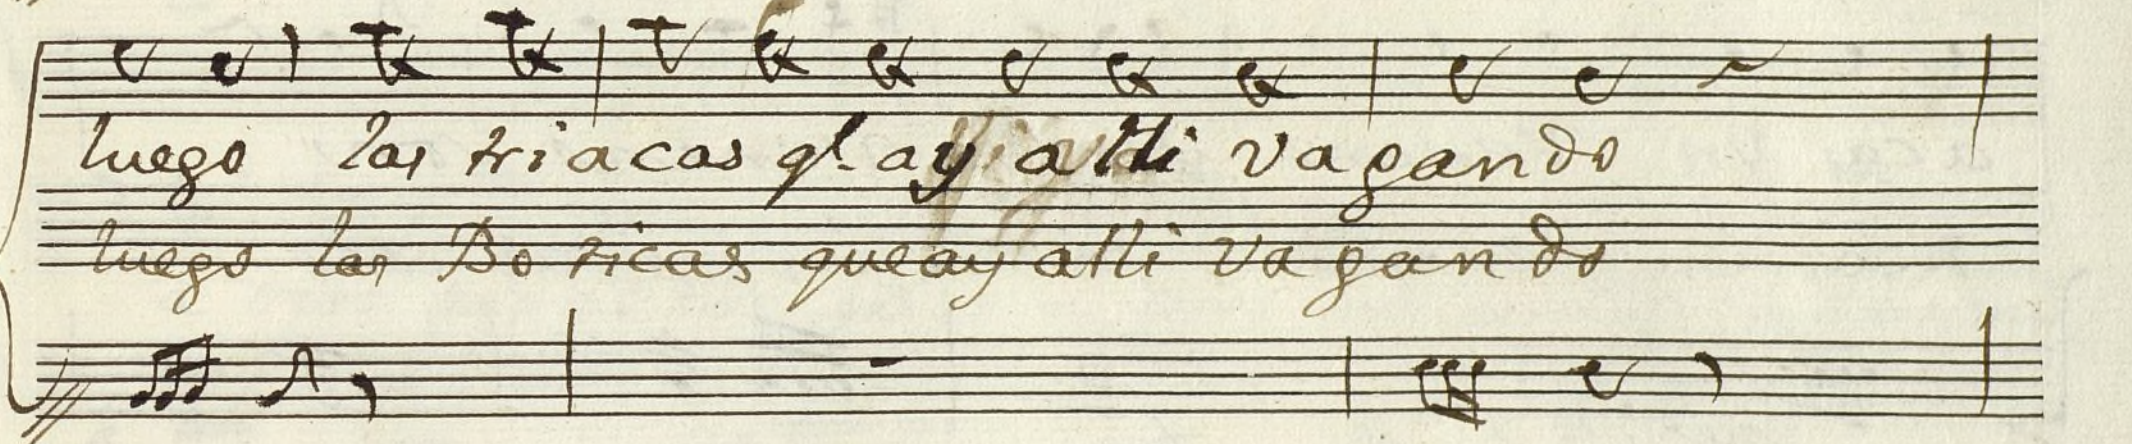 luego las triacas ql ay alli vagando
luego las Boticas queay alli vagando